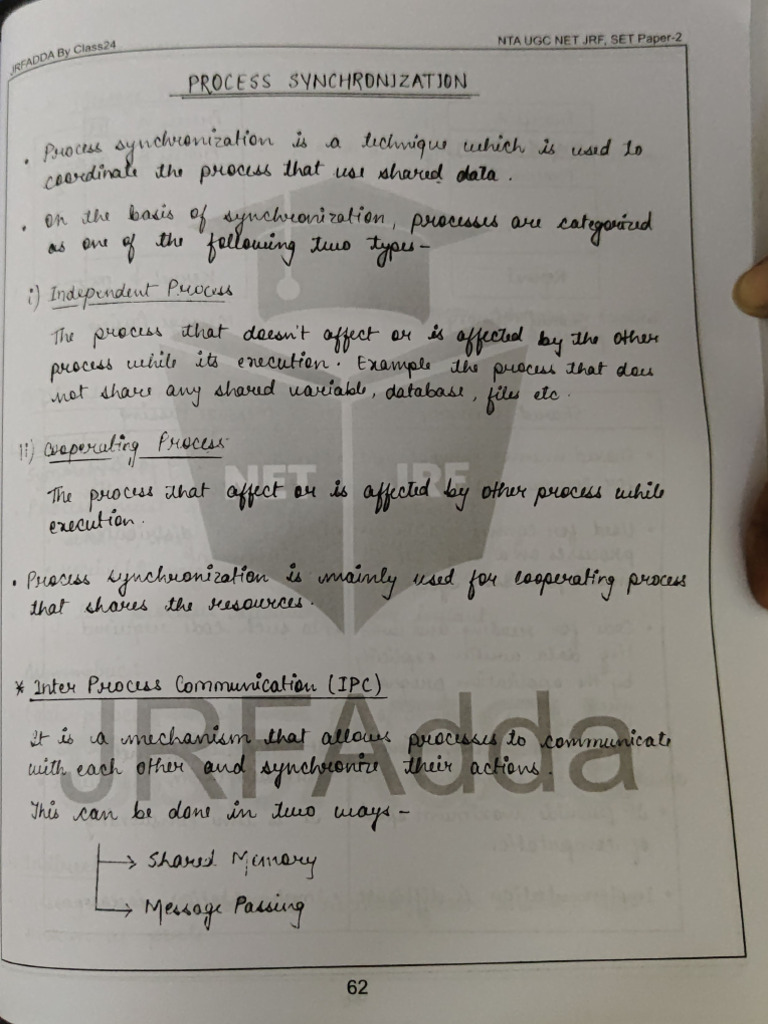 JRFADDA By Class24
NTA UGC NET JRF, SET Paper-2
PROCESS SYNCHRONIZATION
• Process synchronization is a technique which is used to
coordinate the process that use shared data.
• On the basis of synchronization, processes are categorized
as one of the following two types-
i) Independent Process
The process that doesn't affect or is affected by the other
process while its execution. Example the process that does
not share any shared variable, database, files etc.
ii) Cooperating Process
The process that affect or is affected by other process while
execution.
• Process synchronization is mainly used for cooperating process
that shares the resources.
* Inter Process Communication (IPC)
It is a mechanism that allows processes to communicate
with each other and synchronize their actions.
This can be done in two ways-
→ Shared Memory
→ Message Passing
NET JRF
JRFAdda
62